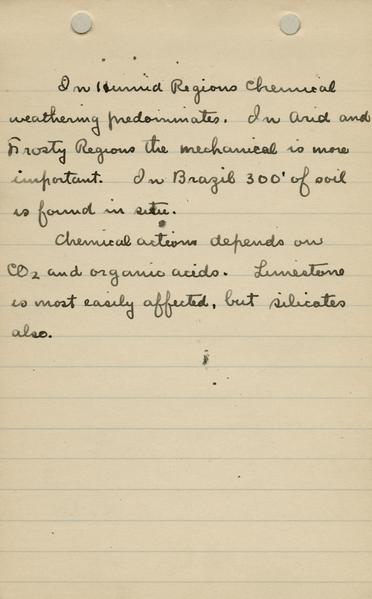 In Humid Regions Chemical
weathering predominates. In Arid and
Frosty Regions the mechanical is more
important. In Brazil 300' of soil
is found in situ.
Chemical actions depends on
CO2 and organic acids. Limestone
is most easily affected, but silicates
also.